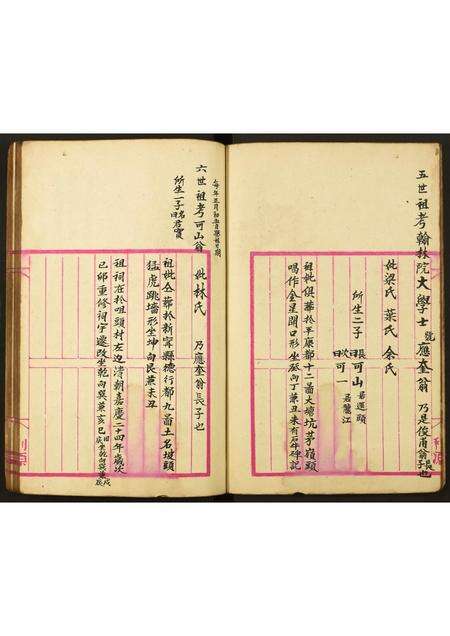 五世祖考翰林院大學士號應奎翁 乃是俊甫翁長子也
妣梁氏 葉氏 余氏
所生二子長曰可山居逕頭 次曰可一居鷺江
祖妣俱葬於平康都十二啚大塘坑茅嶺頭
喝作金星開口形坐癸向丁兼丑未有石碑記
每年三月初五日
六世祖考可山翁 妣林氏 乃應奎翁長子也
所生一子名曰君寶
祖妣仝葬於新寧縣德行都九啚土名坡頭
猛虎跳墻形坐坤向艮兼未丑
祖祠在於咀頭村左边清朝嘉慶二十四年歲次
已卯重修祠宇遷改坐乾向巽兼亥巳